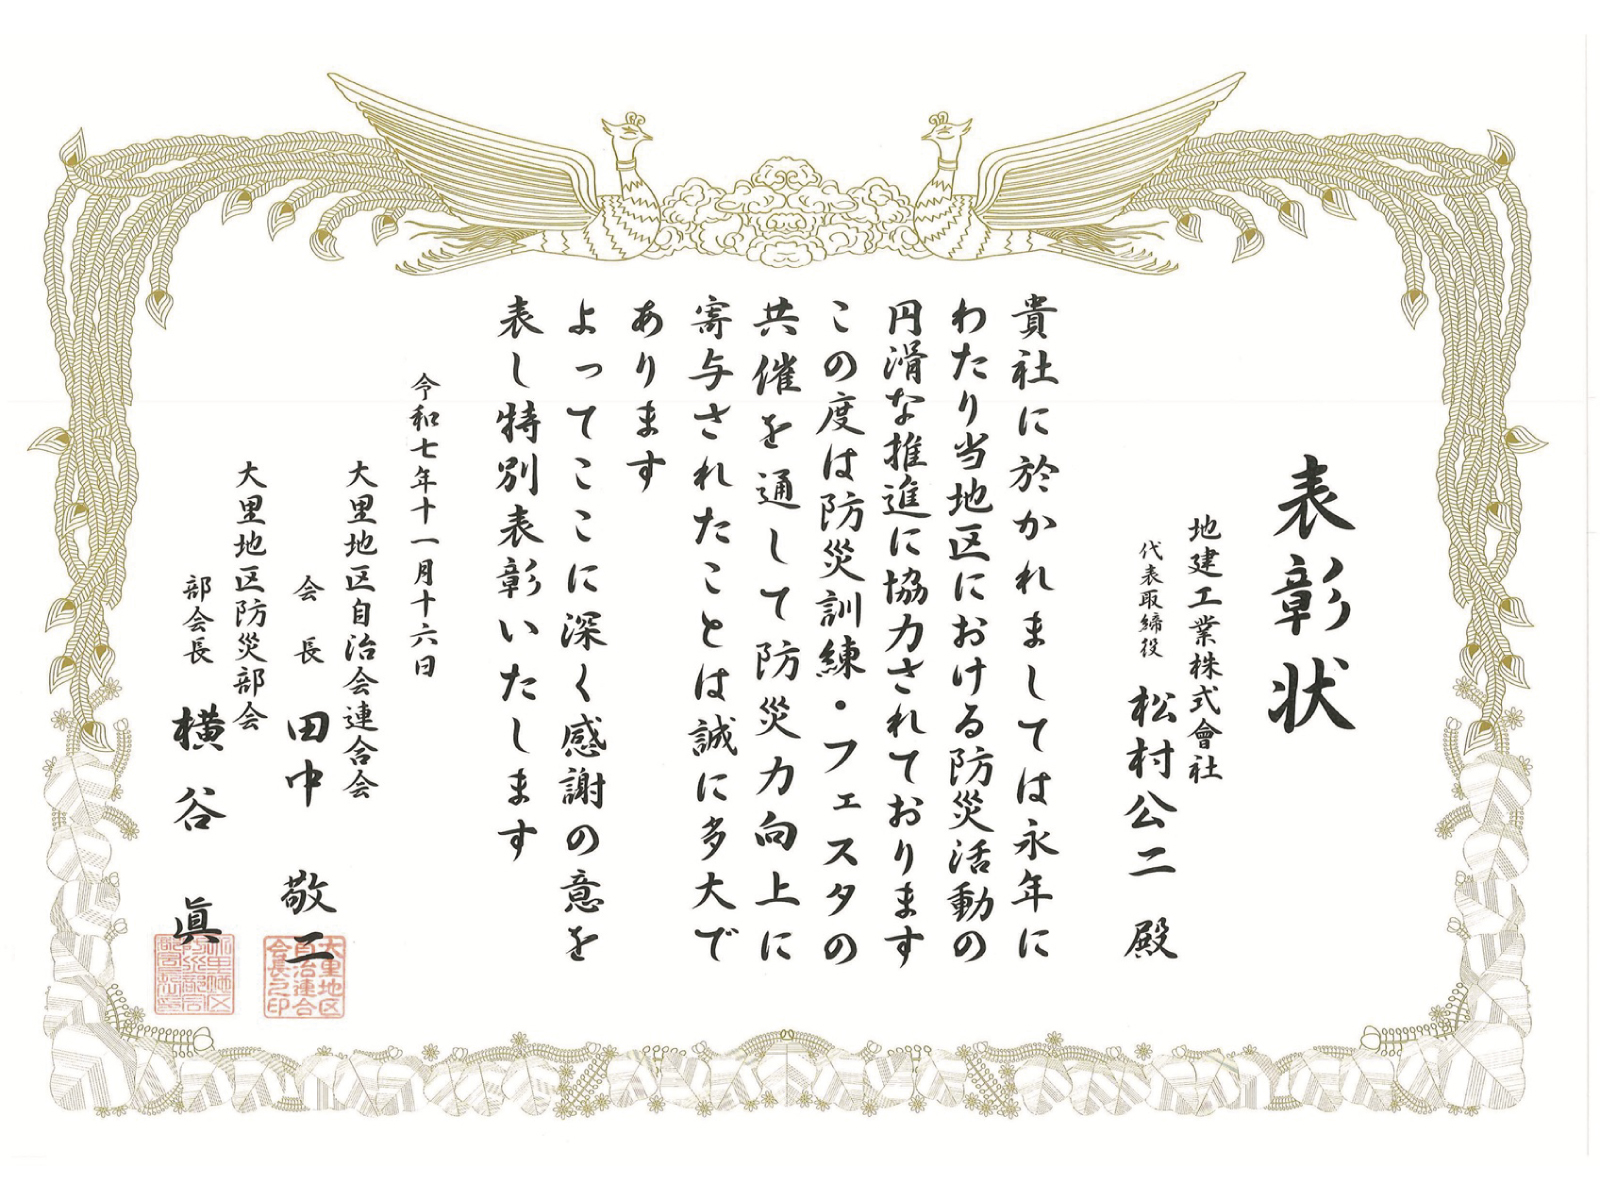 表彰状
地建工業株式會社
代表取締役 松村公二 殿
貴社に於かれましては永年に
わたり当地区における防災活動の
円滑な推進に協力されております
この度は防災訓練・フェスタの
共催を通して防災力向上に
寄与されたことは誠に多大で
あります
よってここに深く感謝の意を
表し特別表彰いたします
令和七年十一月十六日
大里地区自治会連合会
会長 田中 敬二
大里地区自治連合会長之印
大里地区防災部会
部会長 横谷 眞